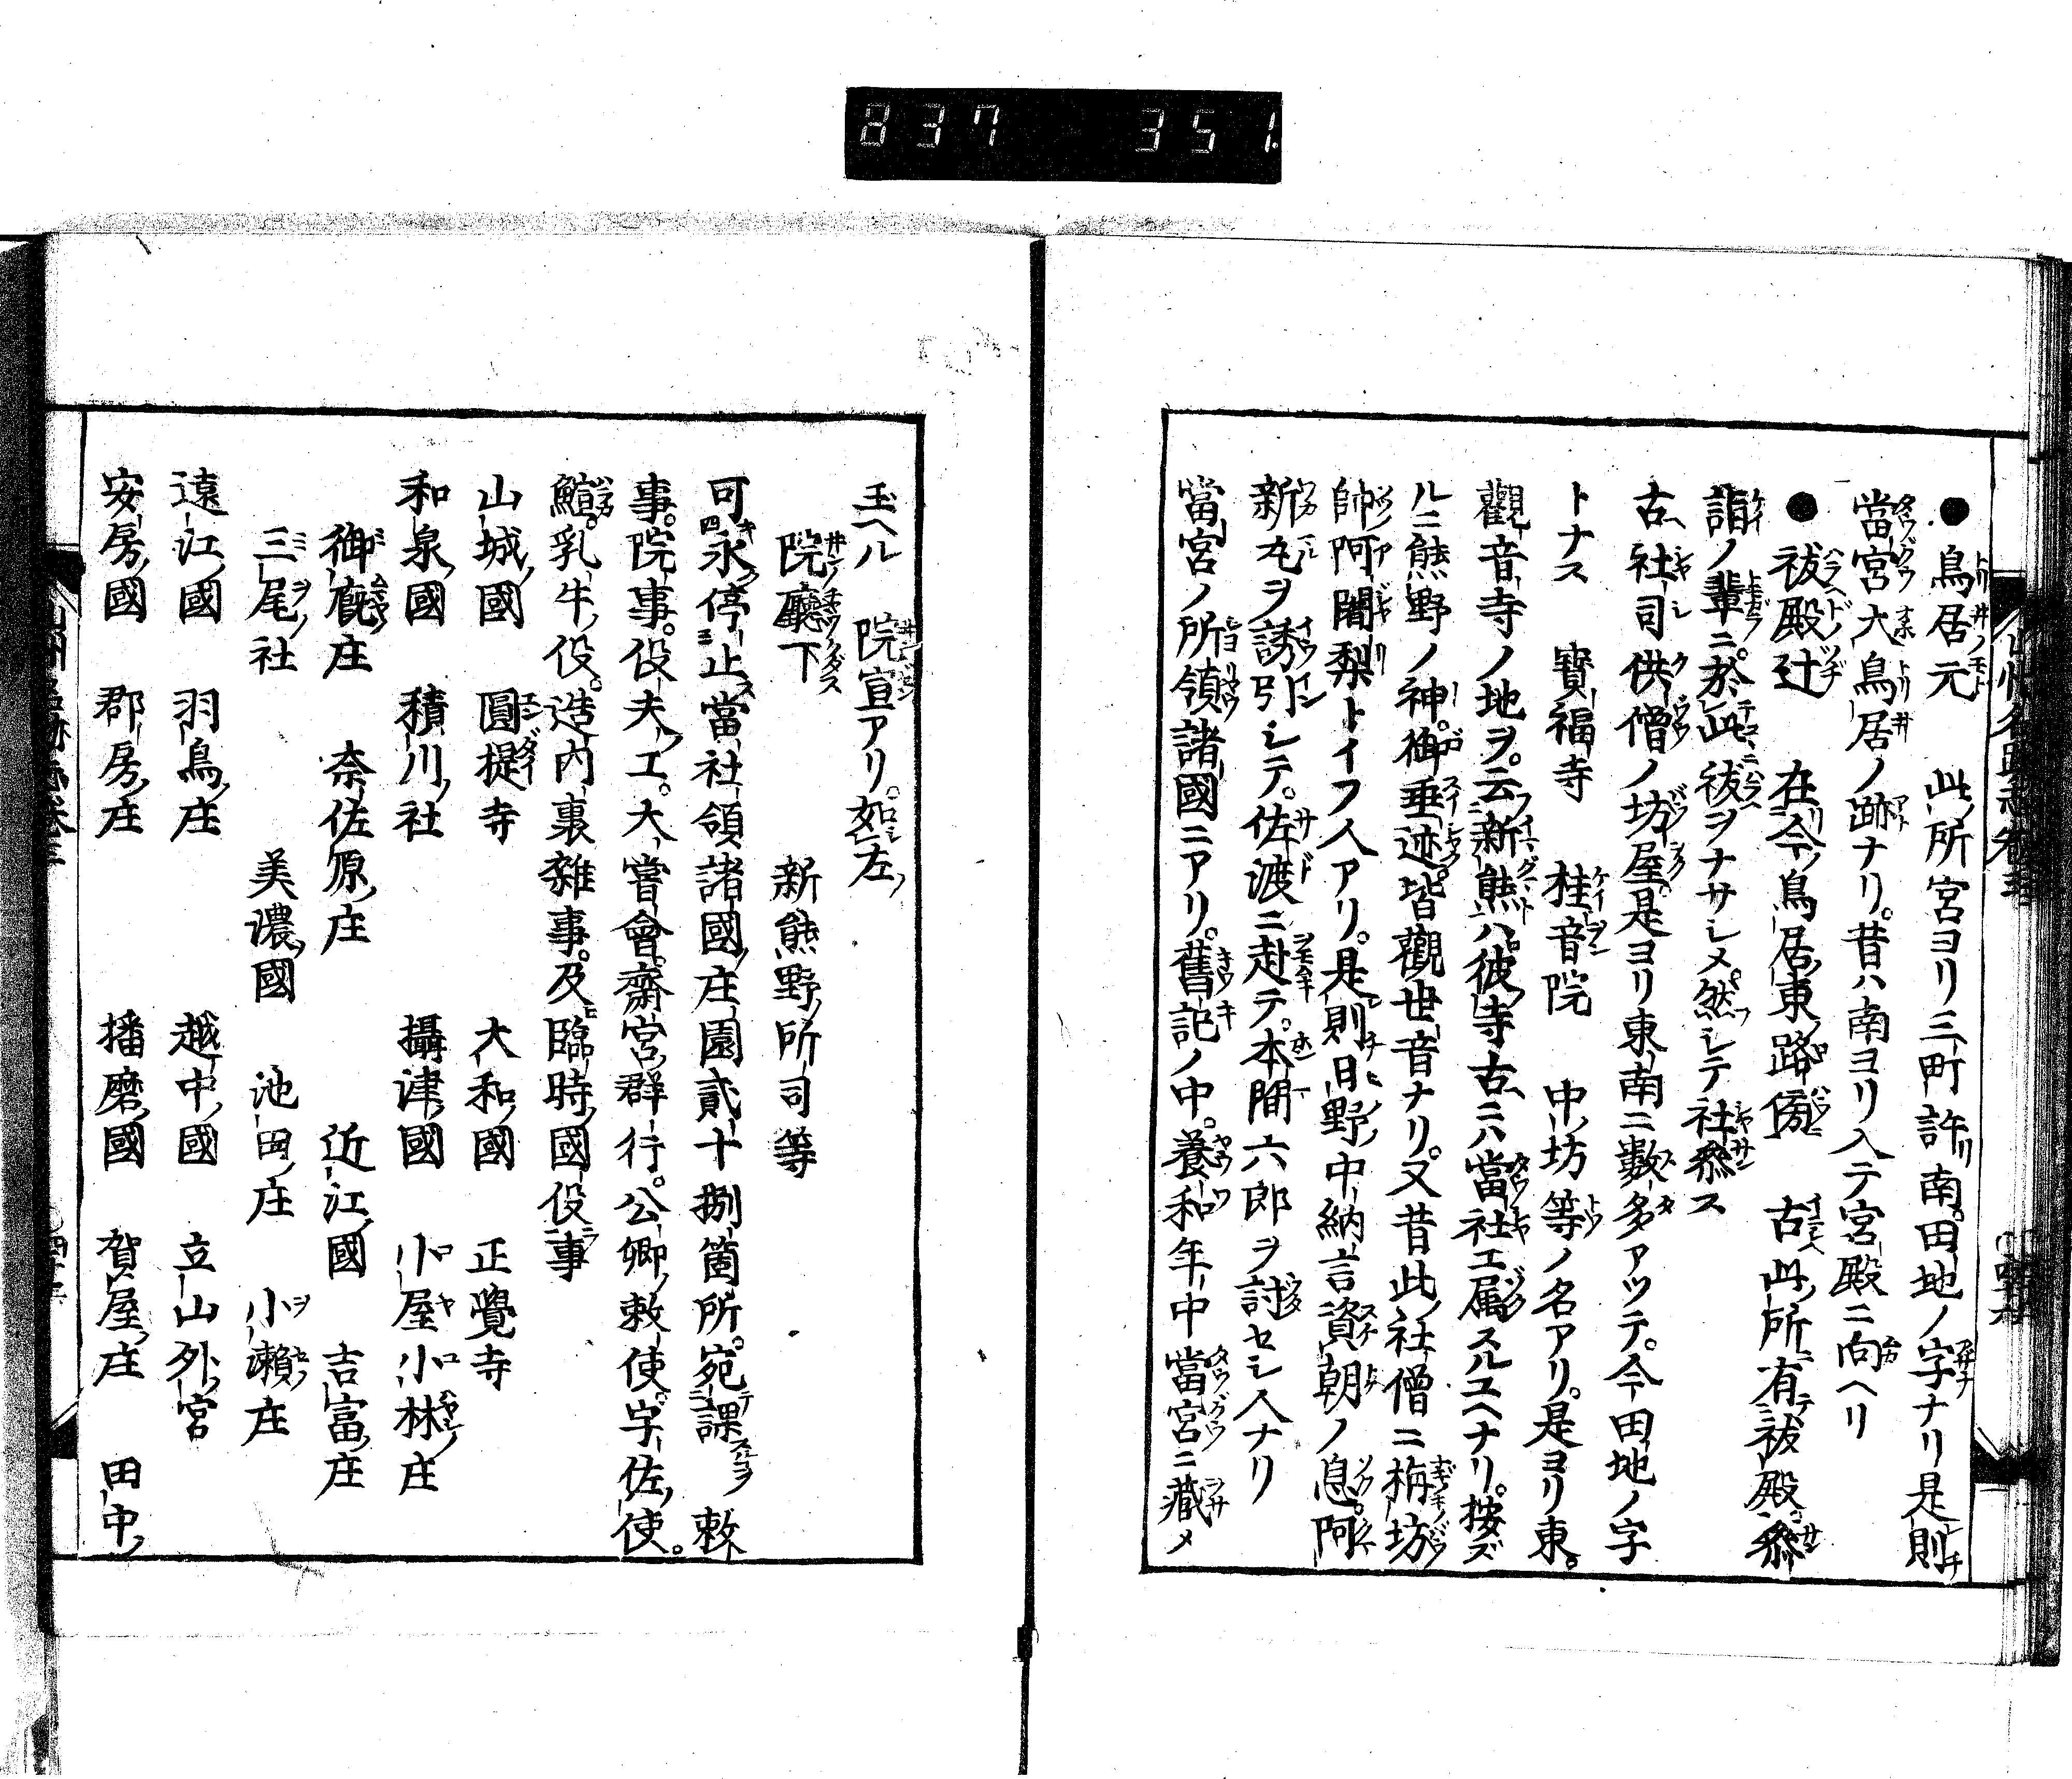 837 351.
●鳥居元　此所宮ヨリ三町許南。田地ノ字ナリ是則
當宮大鳥居ノ跡ナリ。昔ハ南ヨリ入テ宮殿ニ向ヘリ
●祓殿辻　在今鳥居東路傍　古此所有祓殿。參
詣ノ輩ニ。於此祓ヲナサシメ。然シテ社參ス
古ヘ社司供僧ノ坊屋。是ヨリ東南ニ數多アツテ。今田地ノ字
トナス　寳福寺　桂音院　中坊等ノ名アリ。是ヨリ東。
觀音寺ノ地ヲ。云新熊ハ。彼寺古ヘハ當社エ属スルユヘナリ。按ズ
ルニ熊野ノ神。御垂迹。皆觀世音ナリ。又昔此社僧ニ梅坊
帥阿闍梨トイフ人アリ。是則日野中納言資朝ノ息。阿
新丸ヲ誘引シテ。佐渡ニ赴テ。本間六郎ヲ討セシ人ナリ
當宮ノ所領諸國ニアリ。舊記ノ中。養和年中當宮ニ藏メ
玉ヘル　院宣アリ。如左
院廳下　新熊野所司等
可永停止當社領諸國庄園貳十捌箇所。宛課　敕
事。院事。役夫工。大嘗會。齋宮群行。公卿敕使。宇佐使。
鮨。乳牛役。造内裏雜事。及臨時國役事
山城國　圓提寺　大和國　正覺寺
和泉國　積川社　攝津國　小屋小林庄
御厩庄　奈佐原庄　近江國　吉富庄
三尾社　美濃國　池田庄　小瀬庄
遠江國　羽鳥庄　越中國　立山外宮
安房國　郡房庄　播磨國　賀屋庄　田中